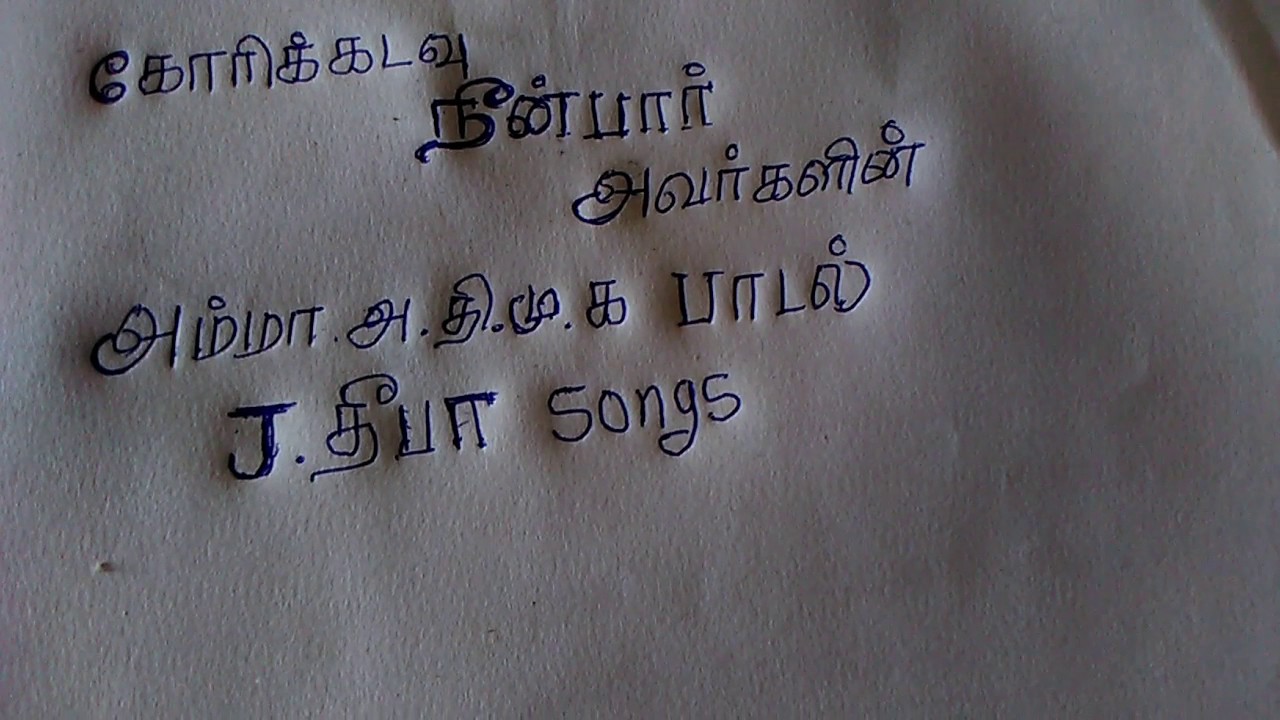 கோரிக்கடவு
நீன்பார்
அவர்களின்
அம்மா.அ.தி.மு.க பாடல்
J.தீபா songs